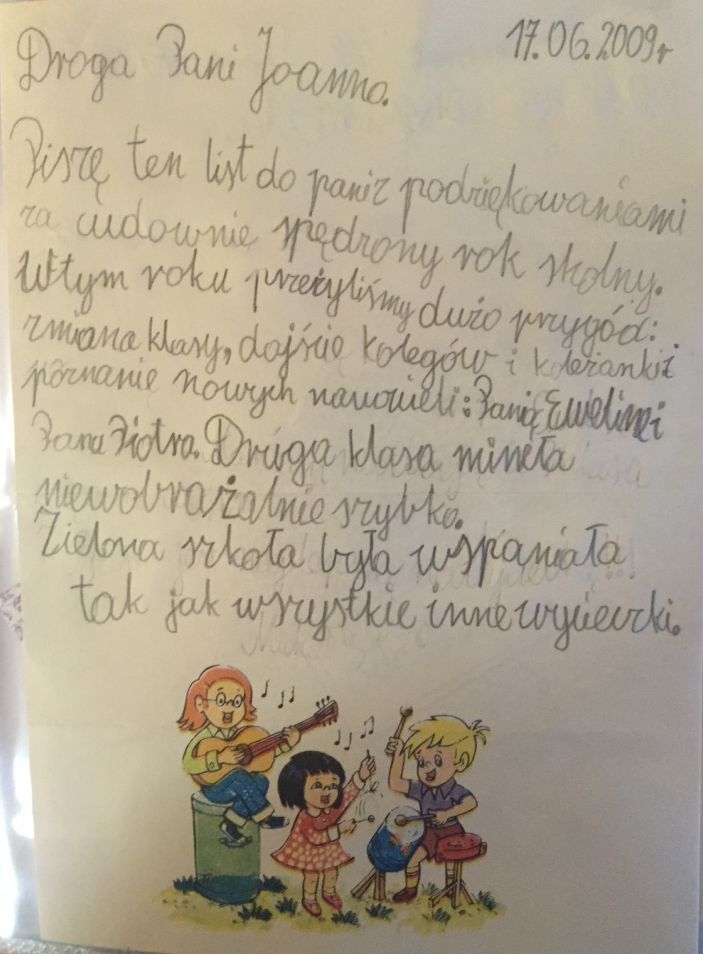 17.06.2009r
Droga Pani Joanno.
Piszę ten list do pani z podziękowaniami
za cudownie spędzony rok skolny.
W tym roku przeżyliśmy dużo przygód:
zmiana klasy, dojście kolegów i koleżanki i
poznanie nowych nauczycieli: Panią Ewelinę i
Pana Piotra. Druga klasa mineła
niewobrażalnie szybko.
Zielona szkoła była wspaniała
tak jak wszystkie inne wycieczki.